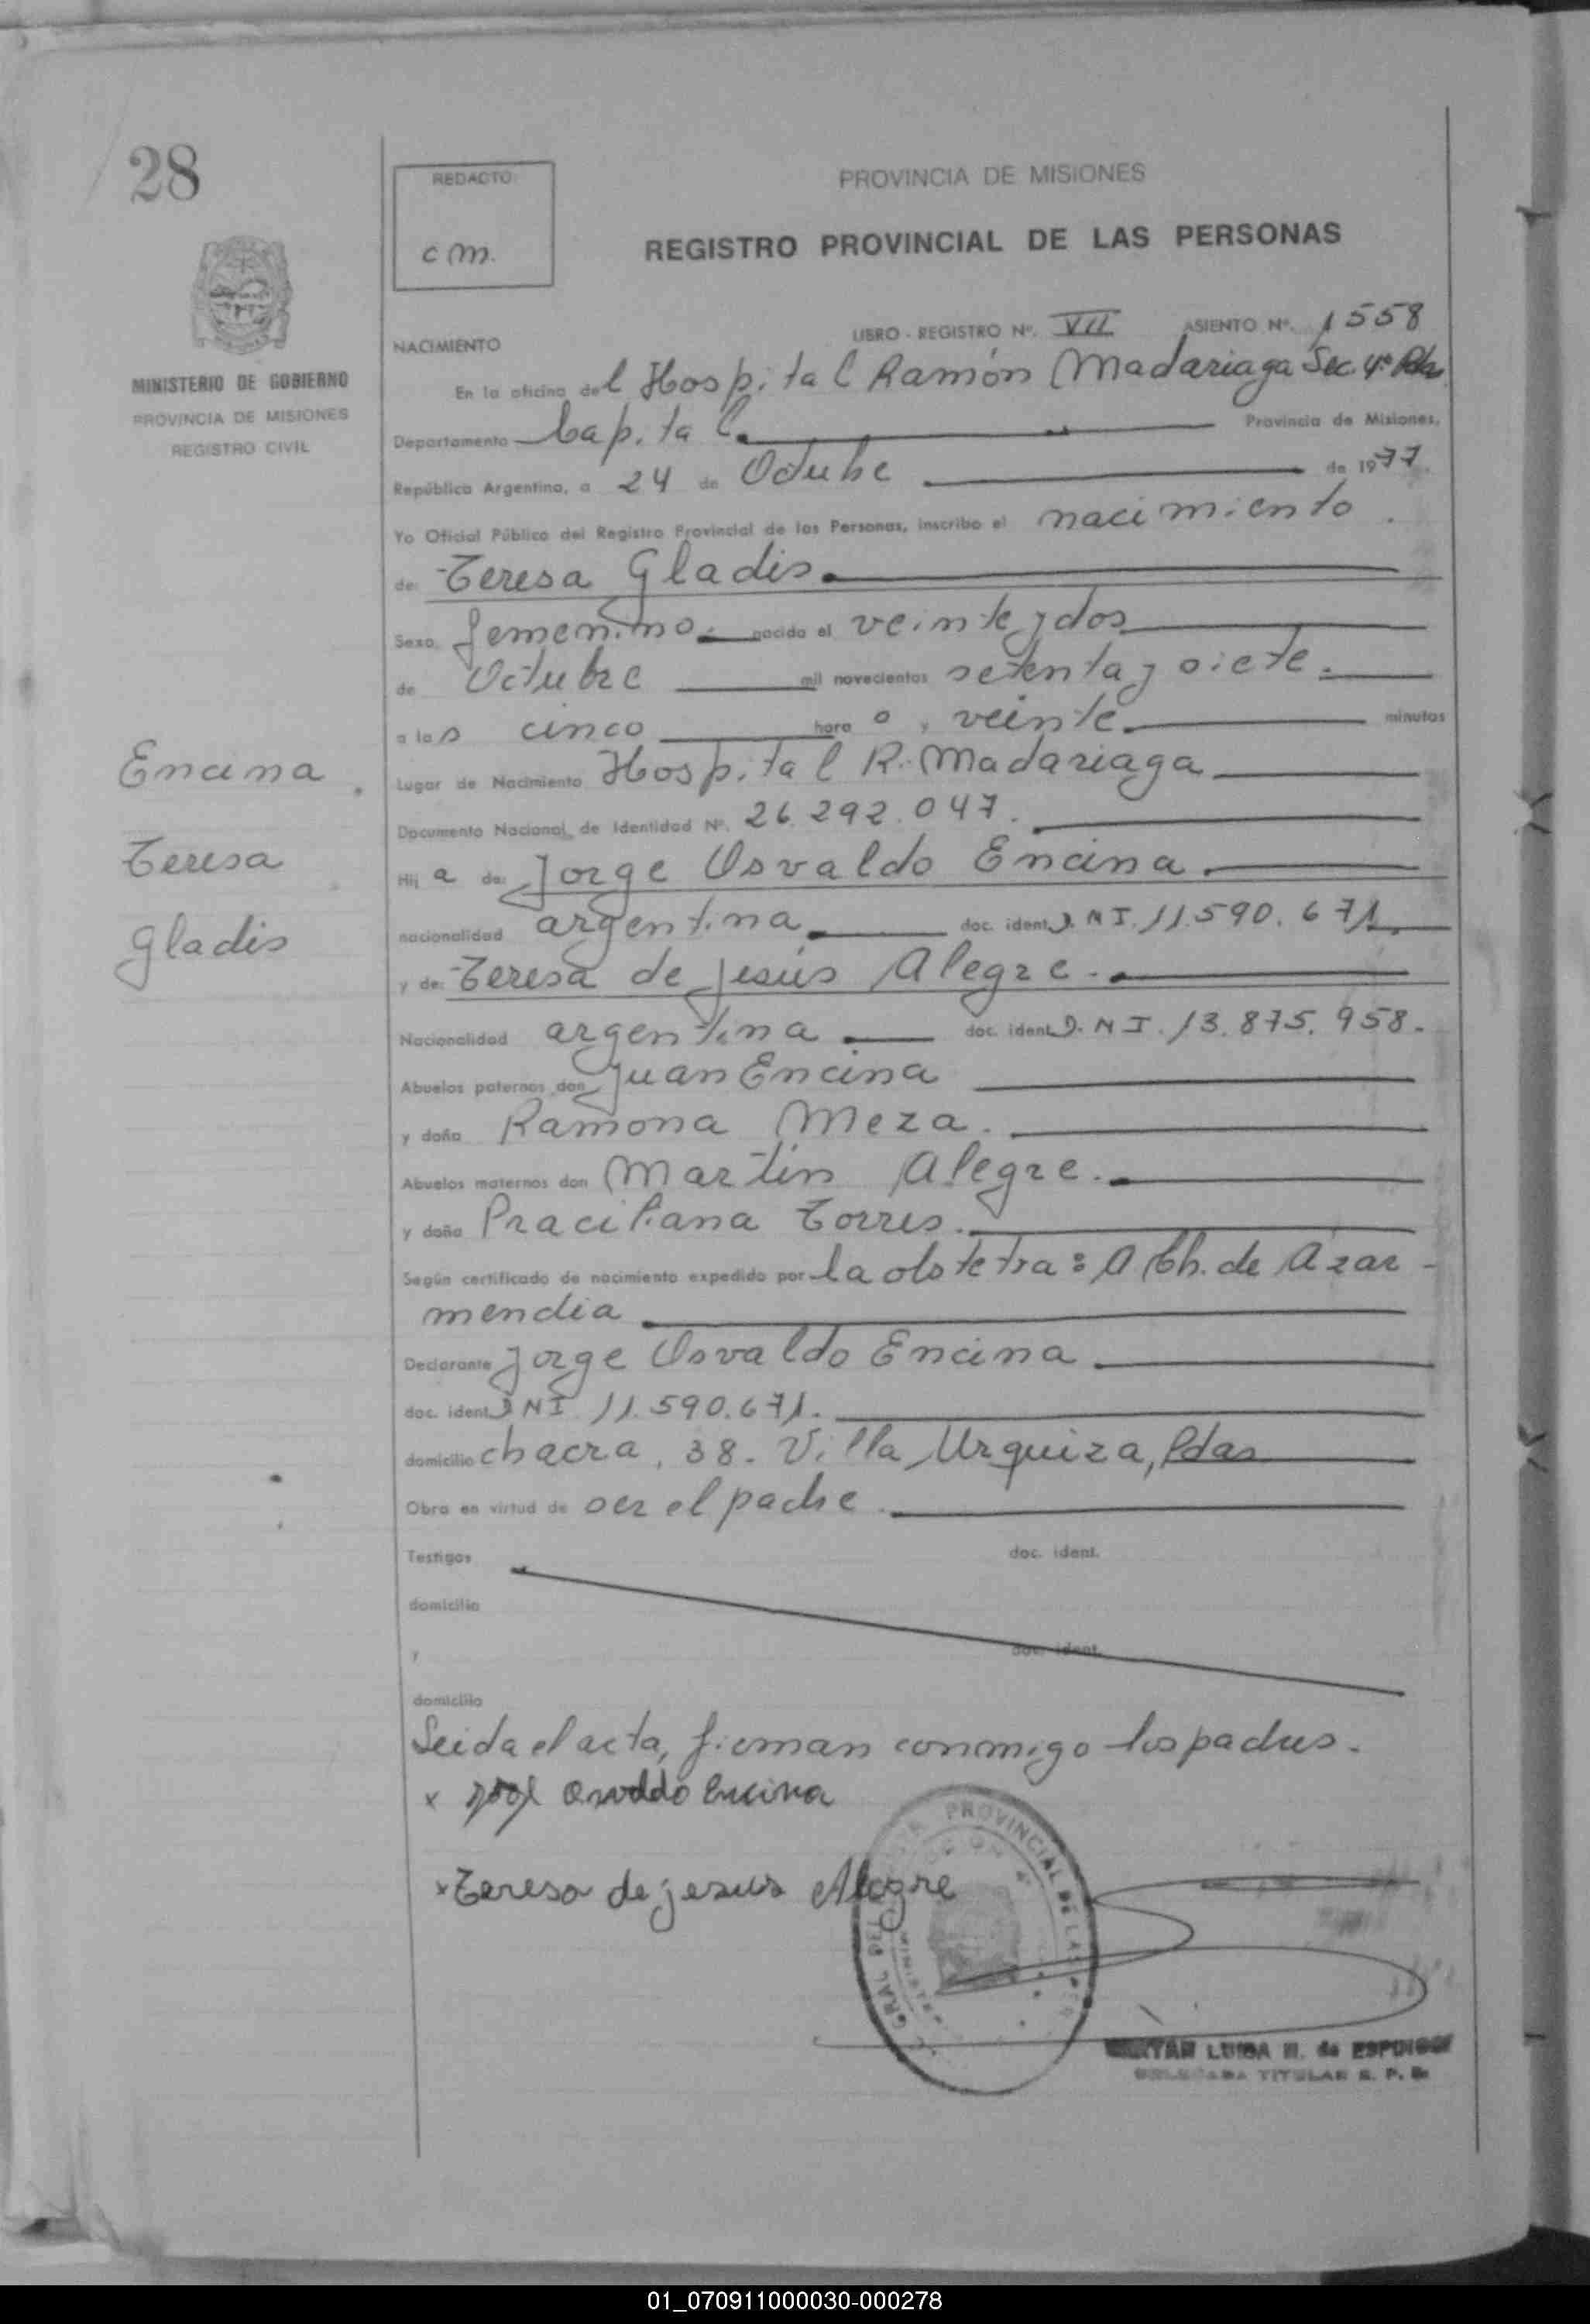 28
REDACTO:
c m.
PROVINCIA DE MISIONES
REGISTRO PROVINCIAL DE LAS PERSONAS
MINISTERIO DE GOBIERNO
PROVINCIA DE MISIONES
REGISTRO CIVIL
NACIMIENTO LIBRO - REGISTRO Nº. VII ASIENTO Nº. 1558
En la oficina del Hospital Ramón Madariaga Sec. 4ª Pdas
Departamento Capital. Provincia de Misiones,
República Argentina, a 24 de Octubre de 1977.
Yo Oficial Público del Registro Provincial de las Personas, inscribo el nacimiento.
de: Teresa Gladis.
Sexo. femenino. nacido el veinte y dos
de Octubre mil novecientos setenta y siete.
a las cinco hora o, veinte. minutos
Lugar de Nacimiento Hospital R. Madariaga
Documento Nacional de Identidad Nº. 26.292.047.
Hij a de: Jorge Osvaldo Encina.
nacionalidad argentina. doc. ident. D.N.I. 11.590.671.
y de: Teresa de Jesús Alegre.
Nacionalidad argentina. doc. ident. D.N.I. 13.875.958.
Abuelos paternos don Juan Encina
y doña Ramona Meza.
Abuelos maternos don Martín Alegre.
y doña Praciliana Torres.
Según certificado de nacimiento expedido por la obstetra: A. Ch. de Azar-
mendia
Declarante Jorge Osvaldo Encina
doc. ident. DNI 11.590.671.
domicilio chacra, 38. Villa Urquiza, Pdas
Obra en virtud de ser el padre.
Testigos doc. ident.
domicilio
y doc. ident.
domicilio
Leida el acta, firman conmigo los padres.
x Jorge Osvaldo Encina
x Teresa de jesus Alegre
Encina.
Teresa
Gladis
GRAL DEL PROVINCIAL DE LAS
LUISA H. de
TITULAR R. P.
01_070911000030-000278